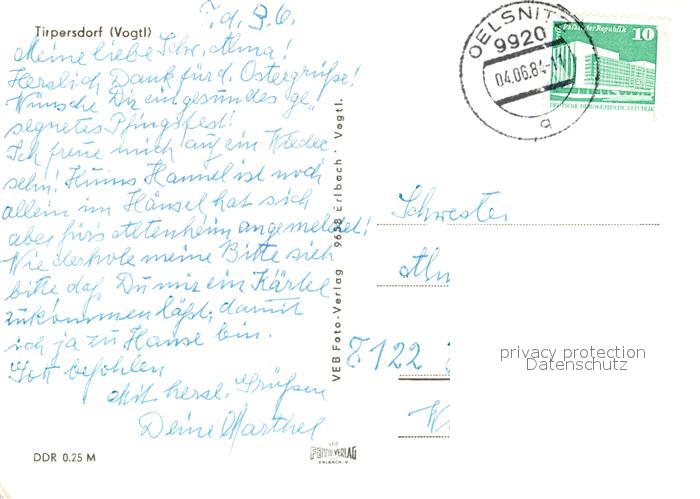 T. d. 3.6.
Tirpersdorf (Vogtl)
Meine liebe Schw. Alma!
Herzlich Dank für d. Ostergrüße!
Wünsche Dir ein gesundes ge
segnetes Pfingsfest!
Ich freue mich auf ein Wieder
sehn! Hanns Hannel ist noch
allein im Häusel hat sich
aber fürs Altenheim angemeldet!
Wiederhole meine Bitte sieh
bitte daß Du mir ein Kärtel
zukommen läßt, damit
ich ja zu Hause bin.
Gott befohlen
Mit herzl. Grüßen
Deine Marthel
DDR 0.25 M
VEB Foto-Verlag 9658 Erlbach · Vogtl.
VEB
FOTO VERLAG
ERLBACH · V.
OELSNITZ
9920
04.06.84-11
a
Palast der Republik
10
DEUTSCHE DEMOKRATISCHE REPUBLIK
Schwester
Alm
8122
privacy protection
Datenschutz